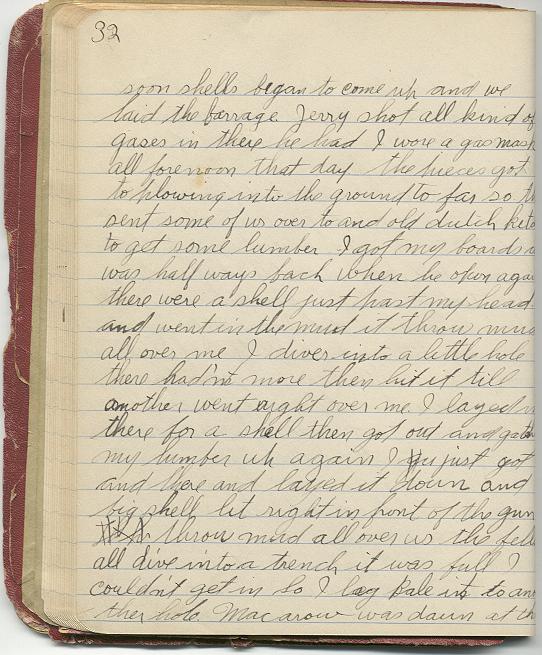 32
soon shells began to come up and we
laid the barrage Jerry shot all kind of
gases in there he had I wore a gas mask
all forenoon that day the pieces got
to plowing into the ground to far so th
sent some of us over to and old dutch
to get some lumber I got my boards
was half ways back when he open agai
there were a shell just past my head
and went in the mud it throw mud
all over me I diver into a little hole
there had'nt more then hit it till
another went right over me. I layed
there for a shell then got out and
my lumber up again I just got
and there and layed it down and
big shell lit right in front of the gun
throw mud all over us the fell
all dive into a trench it was full I
couldn't get in so I lay in to ano
ther hole. Macarow was down at th